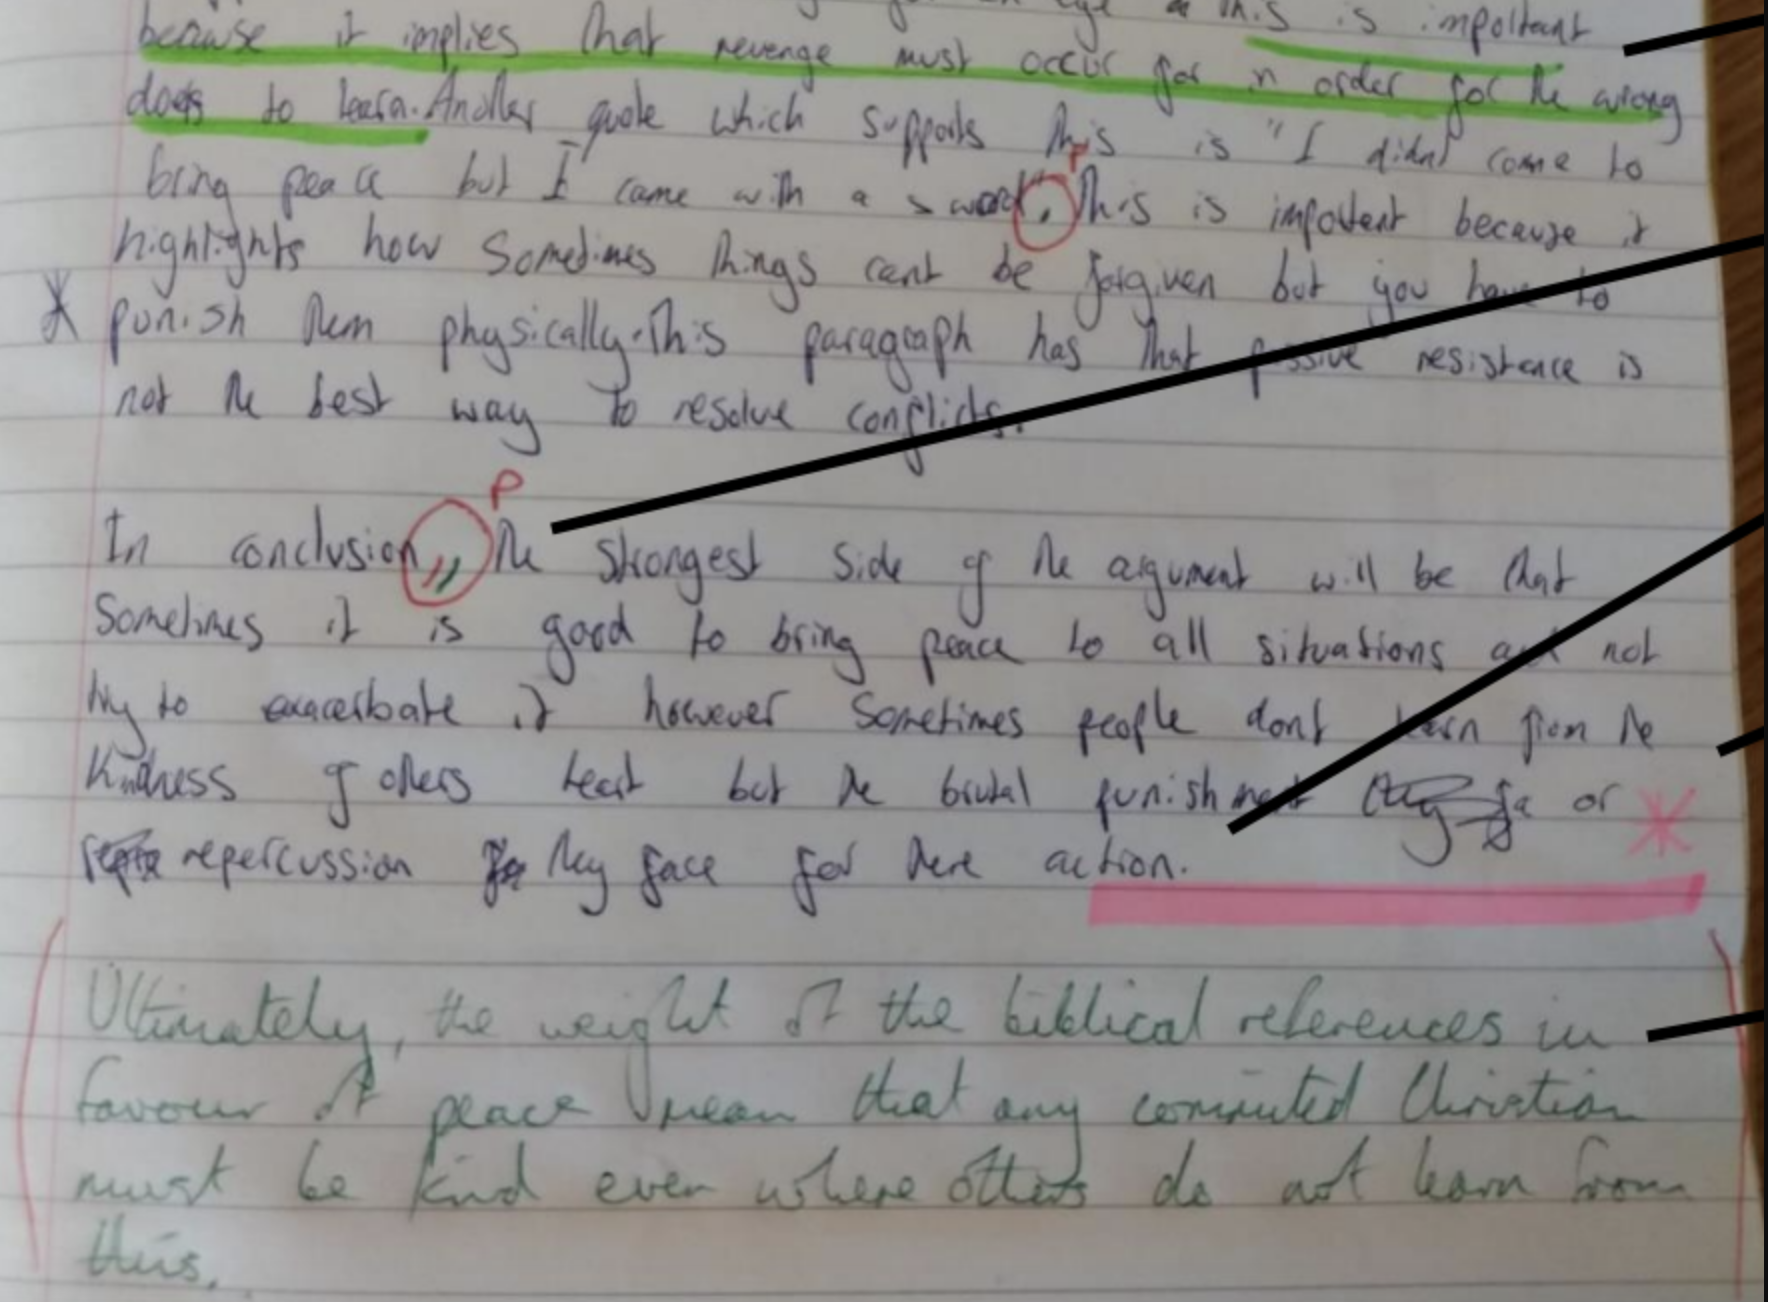 this is important
because it implies that revenge must occur for in order for the wrong
doers to learn. Another quote which supports this is "I didnt come to
bring peace but I came with a sword". This is important because it
P
highlights how sometimes things cant be forgiven but you have to
punish them physically. This paragraph has that passive resistance is
not the best way to resolve conflicts.
P
In conclusion, the strongest side of the argument will be that
sometimes it is good to bring peace to all situations and not
try to exacerbate it however sometimes people dont learn from the
kindness of others heart but the brutal punishment or
repercussion they face for there action.
Ultimately, the weight of the biblical references in
favour of peace mean that any committed Christian
must be kind even where others do not learn from
this.